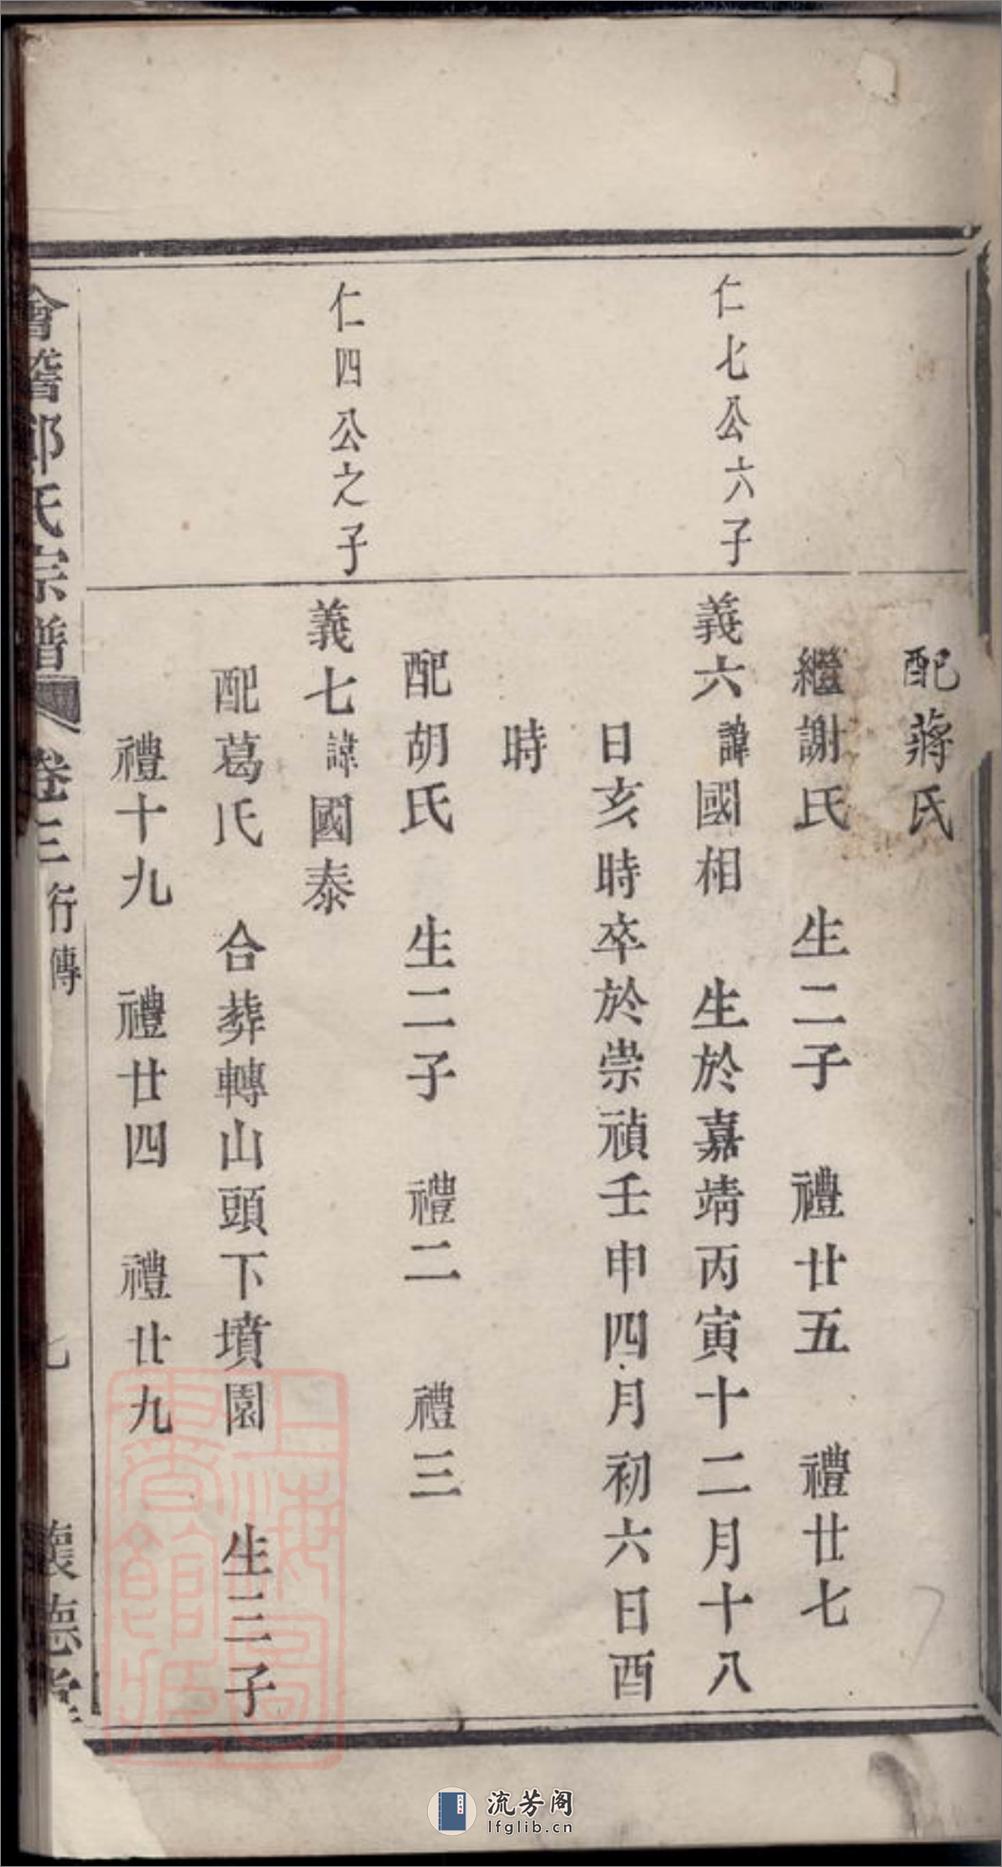 配蔣氏
繼謝氏　生二子　禮廿五　禮廿七
仁七公六子
義六諱國相　生於嘉靖丙寅十二月十八
日亥時卒於崇禎壬申四月初六日酉
時
配胡氏　生二子　禮二　禮三
仁四公之子
義七諱國泰
配葛氏　合葬轉山頭下墳園　生三子
禮十九　禮廿四　禮廿九
會稽　氏宗譜　卷三　行傳　七　懷德堂
上海圖書館藏
流芳阁
lfglib.cn